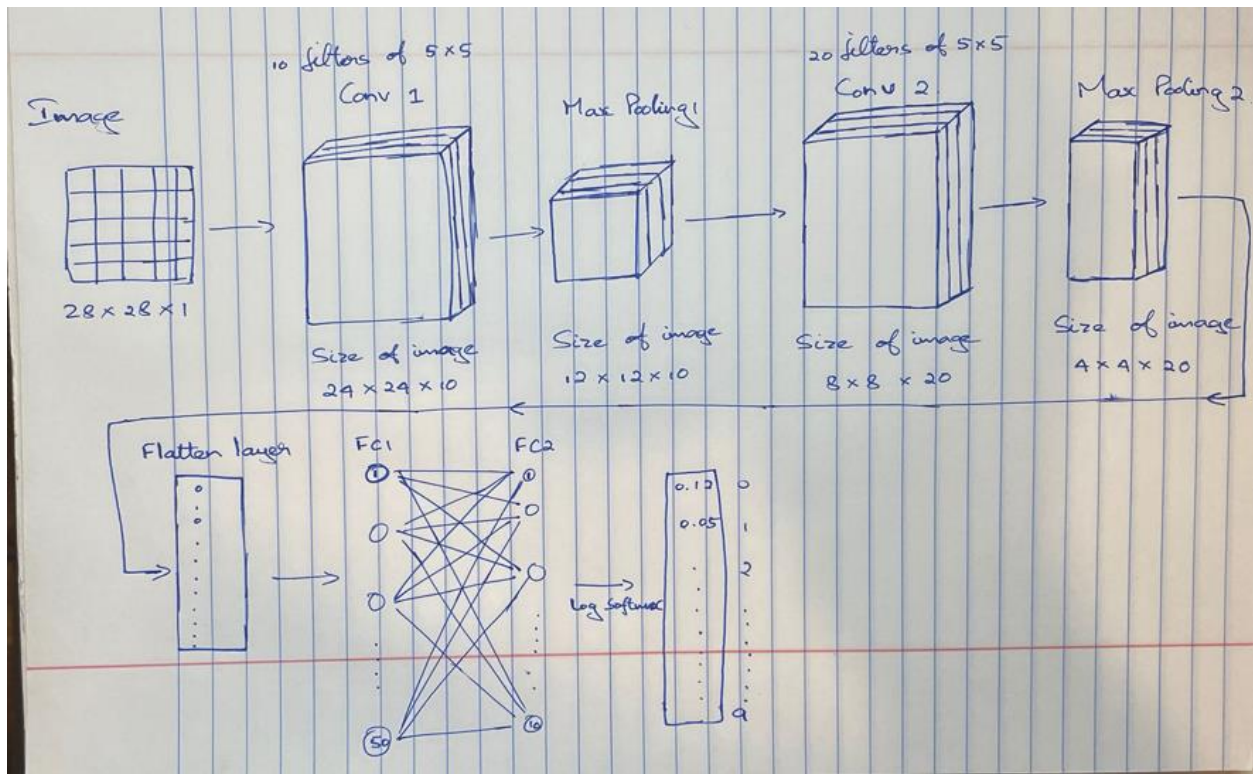 Image
28 × 28 × 1
10 filters of 5×5
Conv 1
Size of image
24 × 24 × 10
Max Pooling 1
Size of image
12 × 12 × 10
20 filters of 5×5
Conv 2
Size of image
8 × 8 × 20
Max Pooling 2
Size of image
4 × 4 × 20
Flatten layer
FC1
1
50
FC2
1
10
Log Softmax
0.12 0
0.05 1
2
9